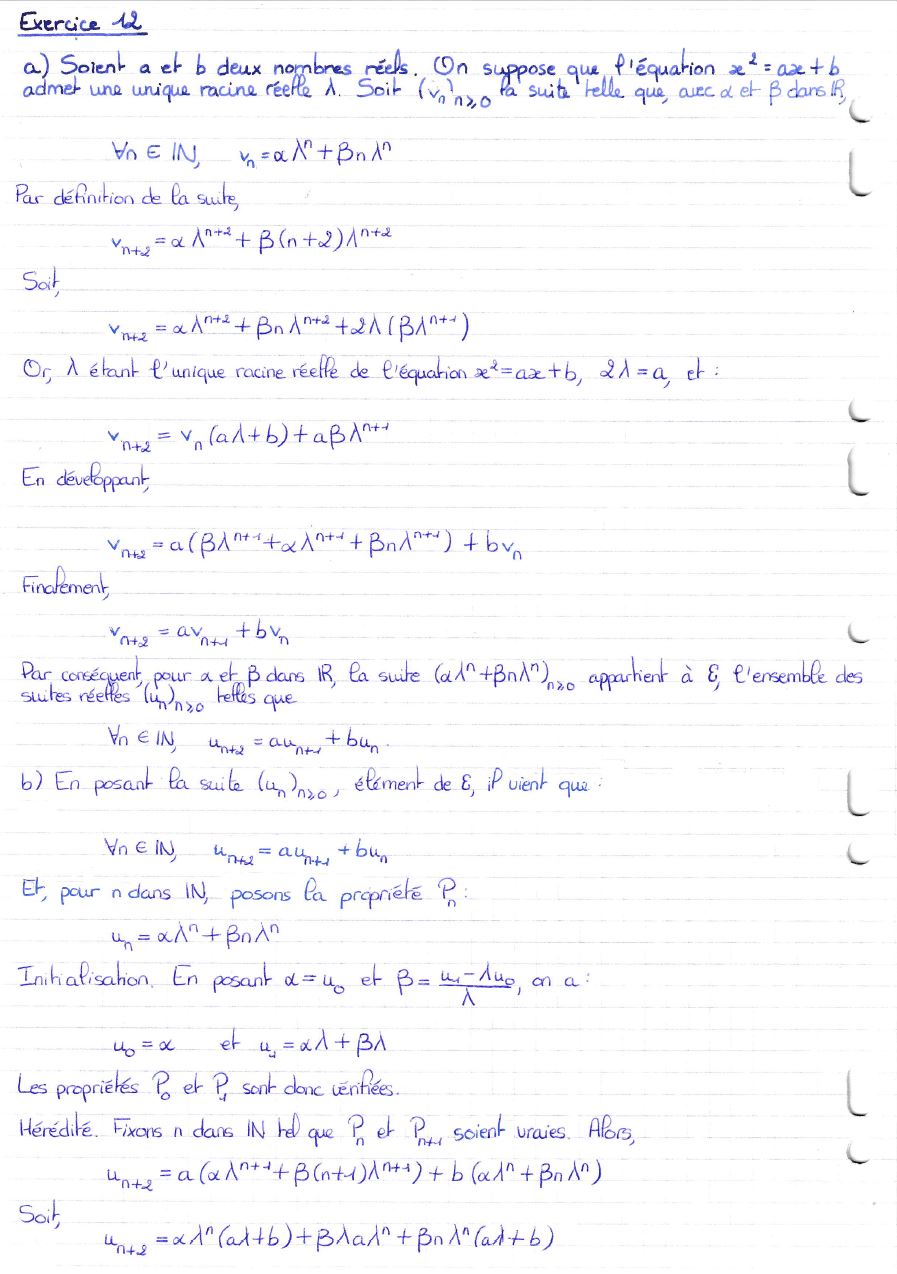 Exercice 12
a) Soient a et b deux nombres réels. On suppose que l'équation x² = ax + b
admet une unique racine réelle λ. Soit (vₙ)ₙ≥₀ la suite telle que, avec α et β dans ℝ,
∀n ∈ ℕ, vₙ = αλⁿ + βnλⁿ
Par définition de la suite,
vₙ₊₂ = αλⁿ⁺² + β(n+2)λⁿ⁺²
Soit,
vₙ₊₂ = αλⁿ⁺² + βnλⁿ⁺² + 2λ(βλⁿ⁺¹)
Or, λ étant l'unique racine réelle de l'équation x² = ax + b, 2λ = a, et :
vₙ₊₂ = vₙ(aλ+b) + aβλⁿ⁺¹
En développant,
vₙ₊₂ = a(βλⁿ⁺¹ + αλⁿ⁺¹ + βnλⁿ⁺¹) + bvₙ
Finalement,
vₙ₊₂ = avₙ₊₁ + bvₙ
Par conséquent, pour α et β dans ℝ, la suite (αλⁿ + βnλⁿ)ₙ≥₀ appartient à Ɛ, l'ensemble des
suites réelles (uₙ)ₙ≥₀ telles que
∀n ∈ ℕ, uₙ₊₂ = auₙ₊₁ + buₙ.
b) En posant la suite (uₙ)ₙ≥₀, élément de Ɛ, il vient que :
∀n ∈ ℕ, uₙ₊₂ = auₙ₊₁ + buₙ
Et, pour n dans ℕ, posons la propriété Pₙ :
uₙ = αλⁿ + βnλⁿ
Initialisation. En posant α = u₀ et β = (u₁ - λu₀)/λ, on a :
u₀ = α et u₁ = αλ + βλ
Les propriétés P₀ et P₁ sont donc vérifiées.
Hérédité. Fixons n dans ℕ tel que Pₙ et Pₙ₊₁ soient vraies. Alors,
uₙ₊₂ = a(αλⁿ⁺¹ + β(n+1)λⁿ⁺¹) + b(αλⁿ + βnλⁿ)
Soit,
uₙ₊₂ = αλⁿ(aλ+b) + βλaλⁿ + βnλⁿ(aλ+b)